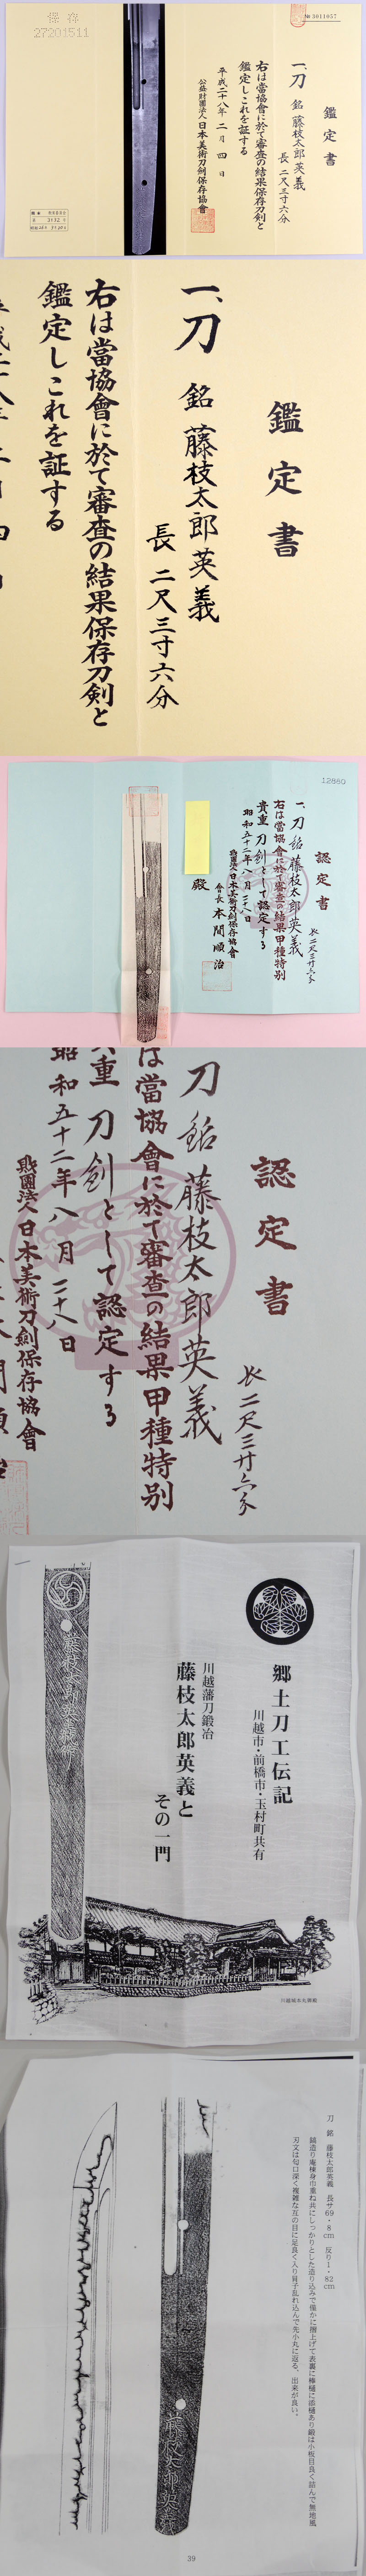 保存
27201511
№ 3011057
鑑定書
一、刀 銘 藤枝太郎英義
長 二尺三寸六分
右は當協會に於て審査の結果保存刀剣と
鑑定しこれを証する
平成二十八年 二月 四日
公益財團法人 日本美術刀劍保存協會
鑑定書
一、刀 銘 藤枝太郎英義
長 二尺三寸六分
右は當協會に於て審査の結果保存刀剣と
鑑定しこれを証する
12880
認定書
長二尺三寸六分
一、刀 銘 藤枝太郎英義
右は當協會に於て審査の結果甲種特別
貴重 刀剣として認定する
昭和五十二年八月二十八日
財團法人日本美術刀劍保存協會
會長 本間順治
殿
認定書
長二尺三寸六分
刀 銘 藤枝太郎英義
は當協會に於て審査の結果甲種特別
重 刀剣として認定する
昭和五十二年八月二十八日
財團法人日本美術刀劍保存協會
郷土刀工伝記
川越市・前橋市・玉村町共有
川越藩刀鍛冶
藤枝太郎英義と
その一門
藤枝太郎英義作
川越城本丸御殿
刀 銘 藤枝太郎英義 長サ69・8cm 反り1・82cm
鎬造り庵棟身巾重ね共にしっかりとした造り込みで僅かに摺上げて表裏に棒樋に添樋あり鍛は小板目良く詰んで無地風
刃文は匂口深く複雑な互の目に足良く入り肩子乱れ込んで先小丸に返る、出来が良い。
藤枝太郎英義
39